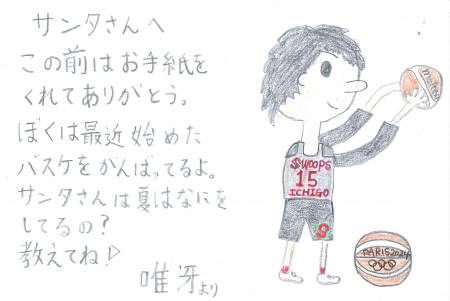 サンタさんへ
この前はお手紙を
くれてありがとう。
ぼくは最近始めた
バスケをがんばってるよ。
サンタさんは夏はなにを
してるの?
教えてね!
唯牙より
SWOOPS
15
ICHIGO
S
molten
PARIS2024